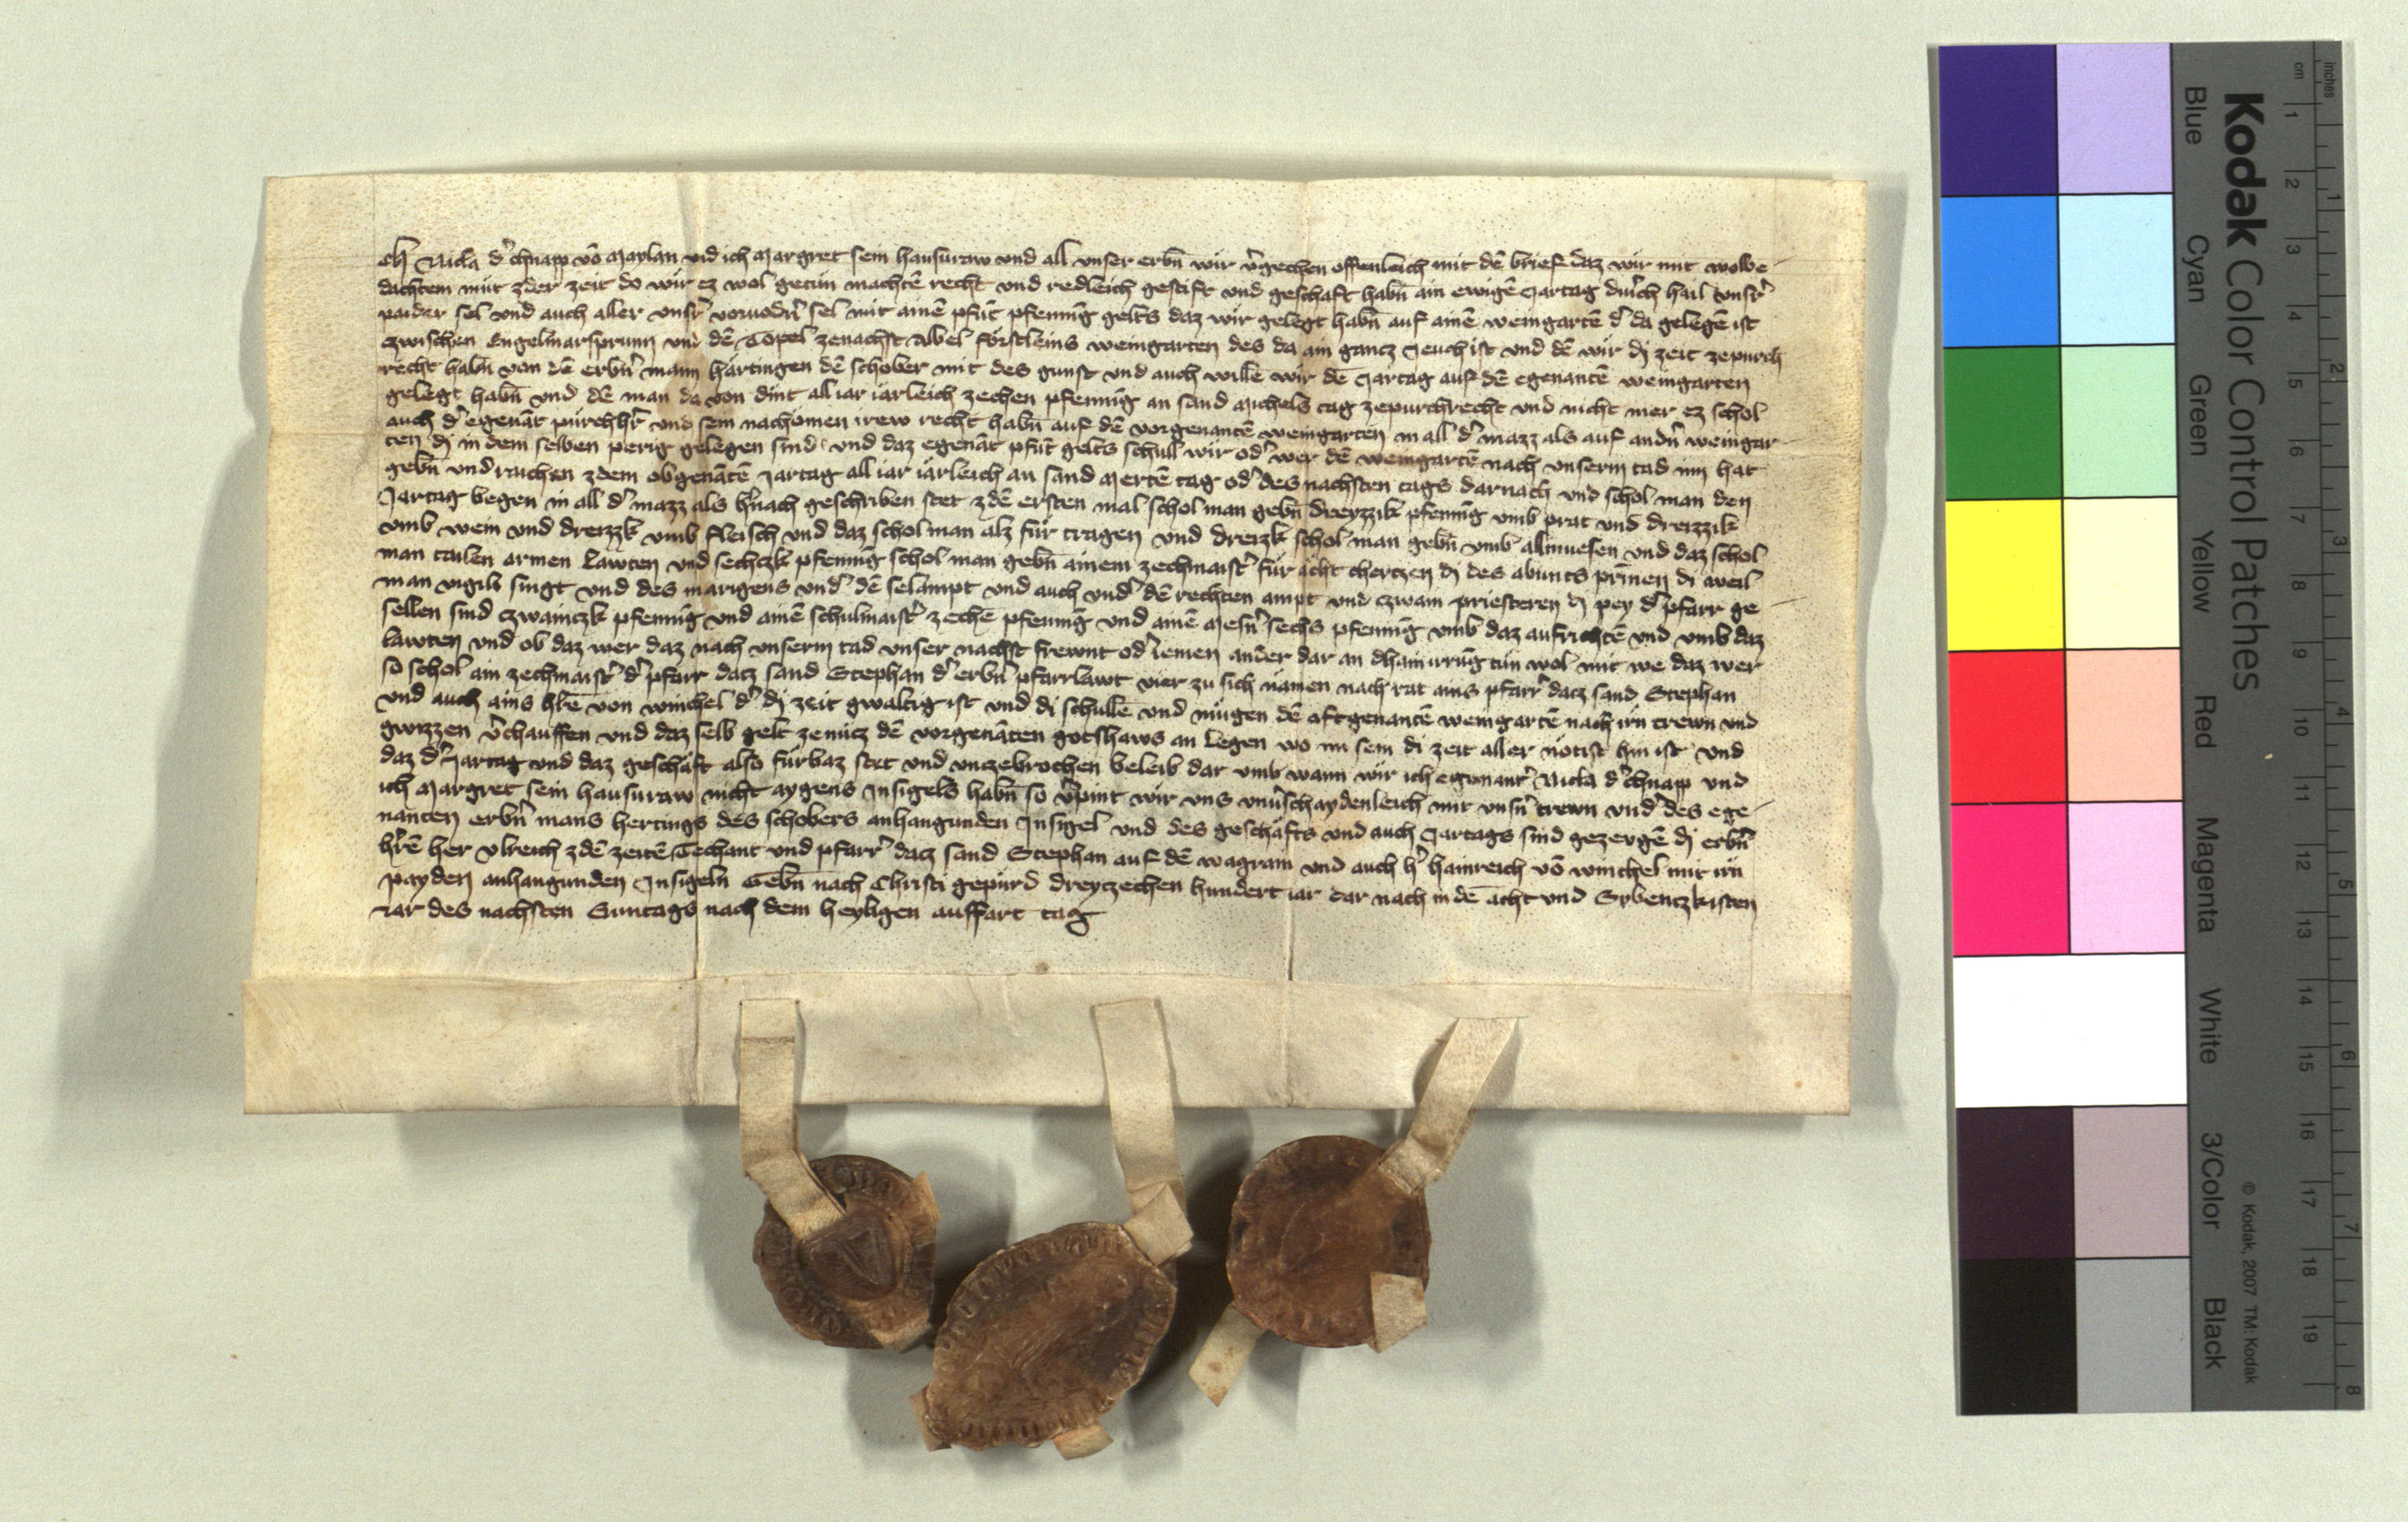 Ich Nicla d' chnapp vō Maylan vnd ich Margret sein hausuraw vnd all vnser erbn̄ wir v'gechen offenleich mit dē brief daz wir mit wolbe-
dachtem mut zder zeit do wir ez wol getun machtē recht vnd redleich gestift vnd geschaft habn̄ ain ewigē Jartag durich hail vnsr'
paider sel vnd auch aller vnsr' voruodn' sel mit ainē pfūt pfennīg gelts daz wir gelegt habn̄ auf ainē weingartē d' da gelegē ist
czwischen Engelmarsprunn vnd dē Topel zenachst Abel förstleins weingarten des da ain gancz Jeuch ist vnd dē wir dy zeit zepurch
recht habn̄ von dē erbn' mann härtingen dē schober mit des gunst vnd auch willē wir dē Jartag auf dē egenantē weingarten
gelegt habn̄ vnd dē man da von dint all iar iarleich zechen pfennīg an sand Michels tag zepurchrecht vnd nicht mer ez schol
auch d' egenāt purchhr' vnd sein nachomen irew recht habn̄ auf dē vorgenantē weingarten in all d' mazz als auf andn' weingar-
ten dy in dem selben perig gelegen sind vnd daz egenāt pfūt gelts schull wir od' wer dē weingartē nach vnserm tad inn hat
gebn̄ vnd raichen zdem obgenātē Jartag all iar iärleich an sand Mertē tag od' des nachsten tags darnach vnd schol man den
Jartag begen in all d' mazz als h'nach geschriben stet zdē ersten mal schol man gebn̄ dreyzzik pfennīg vmb prat vnd dreizzik
vmb wein vnd dreizzk vmb fleisch vnd daz schol man alz für tragen vnd dreizk schol man gebn̄ vmb allmuesen vnd daz schol
man tailen armen läwten vnd sechczk pfennīg schol man gebn̄ ainem zechmaistr' für ächt cherczen dy des abunts prīnen di weil
man vigili singt vnd des marigens vnd' dē selampt vnd auch vnd' dē rechten ampt vnd czwain priesteren dy pey d' pfarr ge-
sellen sind czwainczk pfennīg vnd ainē schulmaistr' zechē pfennīg vnd ainē Mesn' sechs pfennīg vmb daz aufrichtē vnd vmb daz
läwten vnd ob daz wer daz nach vnserm tad vnser nachst frewnt od' iemen ander dar an dhain irrūg tün wol mit we daz wer
so schol ain zechmaistr' d' pfarr dacz sand Stephan d' erbn' pfarrläwt vier zu sich nämen nach rat ains pfarr' dacz sand Stephan
vnd auch ains hr'ē von winchel d' dy zeit gwaltig ist vnd di schullē vnd mügen dē aftgenantē weingartē nach irn trewn vnd
gwizzen v'chauffen vnd daz selb gelt zenücz dē vorgenāten gotshaws an legen wo im sein di zeit aller nötist hin ist vnd
daz d' Jartag vnd daz geschäft also fürbaz stet vnd vnczebrochen beleib dar vmb wann wir ich egenantr' Nicla d' chnapp vnd
ich Margret sein hausuraw nicht aygens Insigels habn̄ so v'pint wir vns vnu'schaydenleich mit vnsn' trewn vnd' des ege-
nanten erbn' mans hertings des schobers anhangunden Insigel vnd des geschäfts vnd auch Jartags sind gezeugē dy erbn'
hr'ē her vlreich zdē zeitē Techant vnd pfarr' dacz sand Stephan auf dē wagram vnd auch h' hainreich vō winchel mit irn
payden anhangunden Insigeln Gebn̄ nach Christi gepürd dreyczechen hundert iar dar nach in dē ächt vnd Sybenczkisten
Jar des nachsten Suntags nach dem heyligen auffart tag
Kodak Color Control Patches
Blue Cyan Green Yellow Red Magenta White 3/Color Black
© Kodak, 2007 TM: Kodak
cm 1 2 3 4 5 6 7 8 9 10 11 12 13 14 15 16 17 18 19
inches 1 2 3 4 5 6 7 8